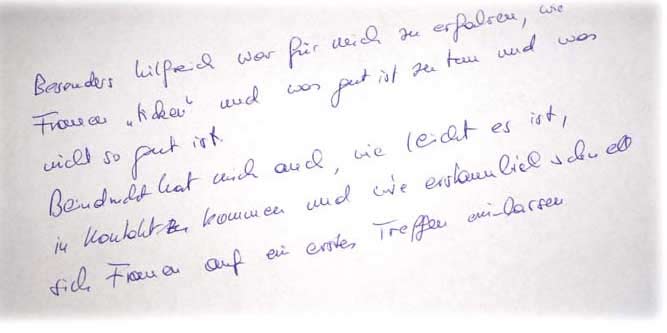 Besonders hilfreich war für mich zu erfahren, wie
Frauen „ticken“ und was gut ist zu tun und was
nicht so gut ist.
Beindruckt hat mich auch, wie leicht es ist,
in Kontakt zu kommen und wie erstaunlich schnell
sich Frauen auf ein erstes Treffen einlassen